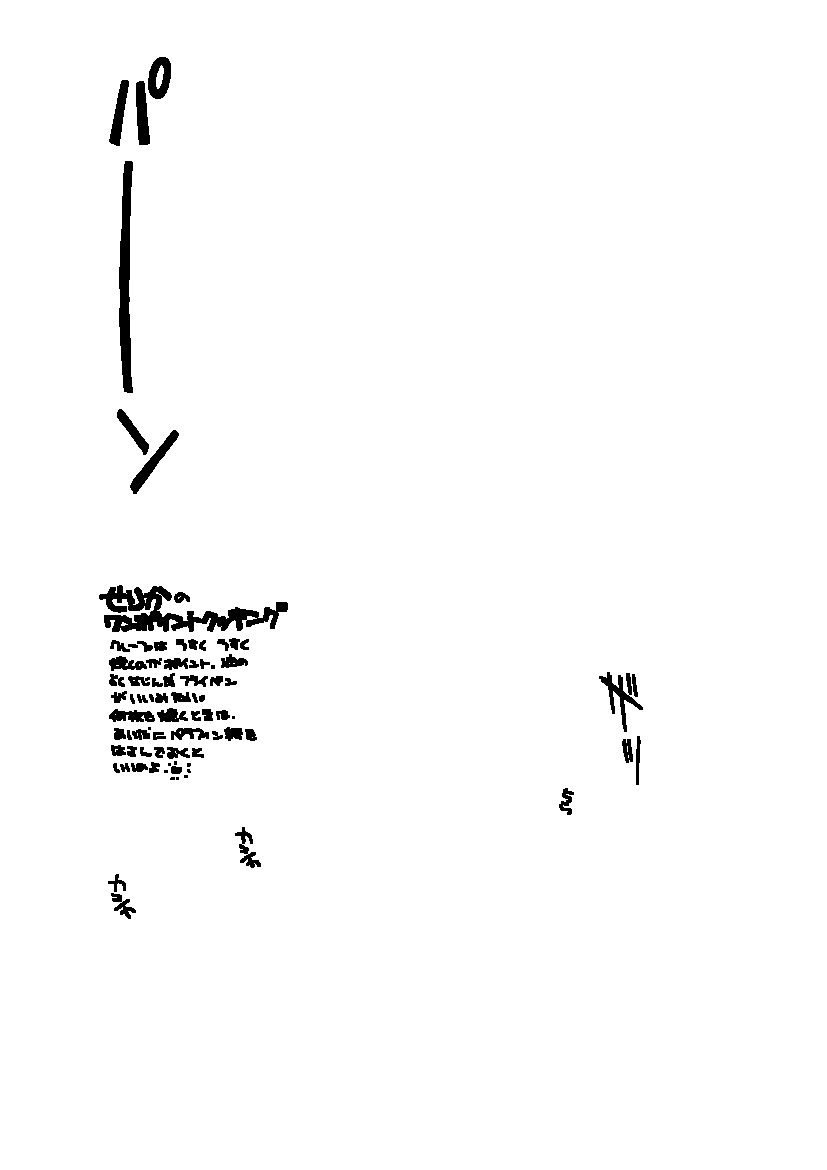 パーン
せりかの
ワンポイントクッキング
クレープは うすく うすく
焼くのがポイント。油の
よくなじんだ フライパン
がいいみたい。
何枚も 焼くときは、
あいだに パラフィン紙を
はさんでおくと
いいのよ。